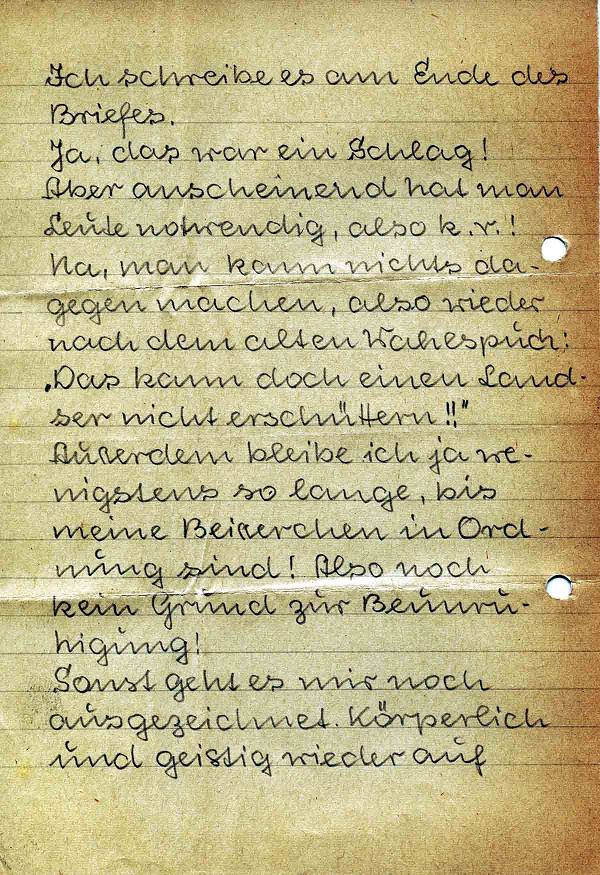 Ich schreibe es am Ende des
Briefes.
Ja, das war ein Schlag!
Aber anscheinend hat man
Leute notwendig, also k.v.!
Na, man kann nichts da-
gegen machen, also wieder
nach dem alten Wahlspuch:
„Das kann doch einen Land-
ser nicht erschüttern!!"
Außerdem bleibe ich ja we-
nigstens so lange, bis
meine Beißerchen in Ord-
nung sind! Also noch
kein Grund zur Beunru-
higung!
Sonst geht es mir noch
ausgezeichnet. Körperlich
und geistig wieder auf